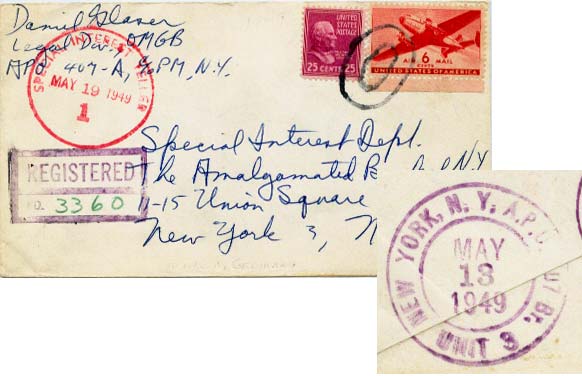 Daniel Glaser
Legal Div., OMGB
APO 407-A, % PM, N.Y.
SPECIAL INTEREST TELLER
MAY 19 1949
1
UNITED STATES POSTAGE
25 CENTS 25
AIR 6 MAIL
CENTS
UNITED STATES OF AMERICA
REGISTERED
NO. 3360
Special Interest Dept.
The Amalgamated B N.Y.
11-15 Union Square
New York 3, N
NEW YORK, N. Y. A.P.O. 407 Br. UNIT 3
MAY
13
1949